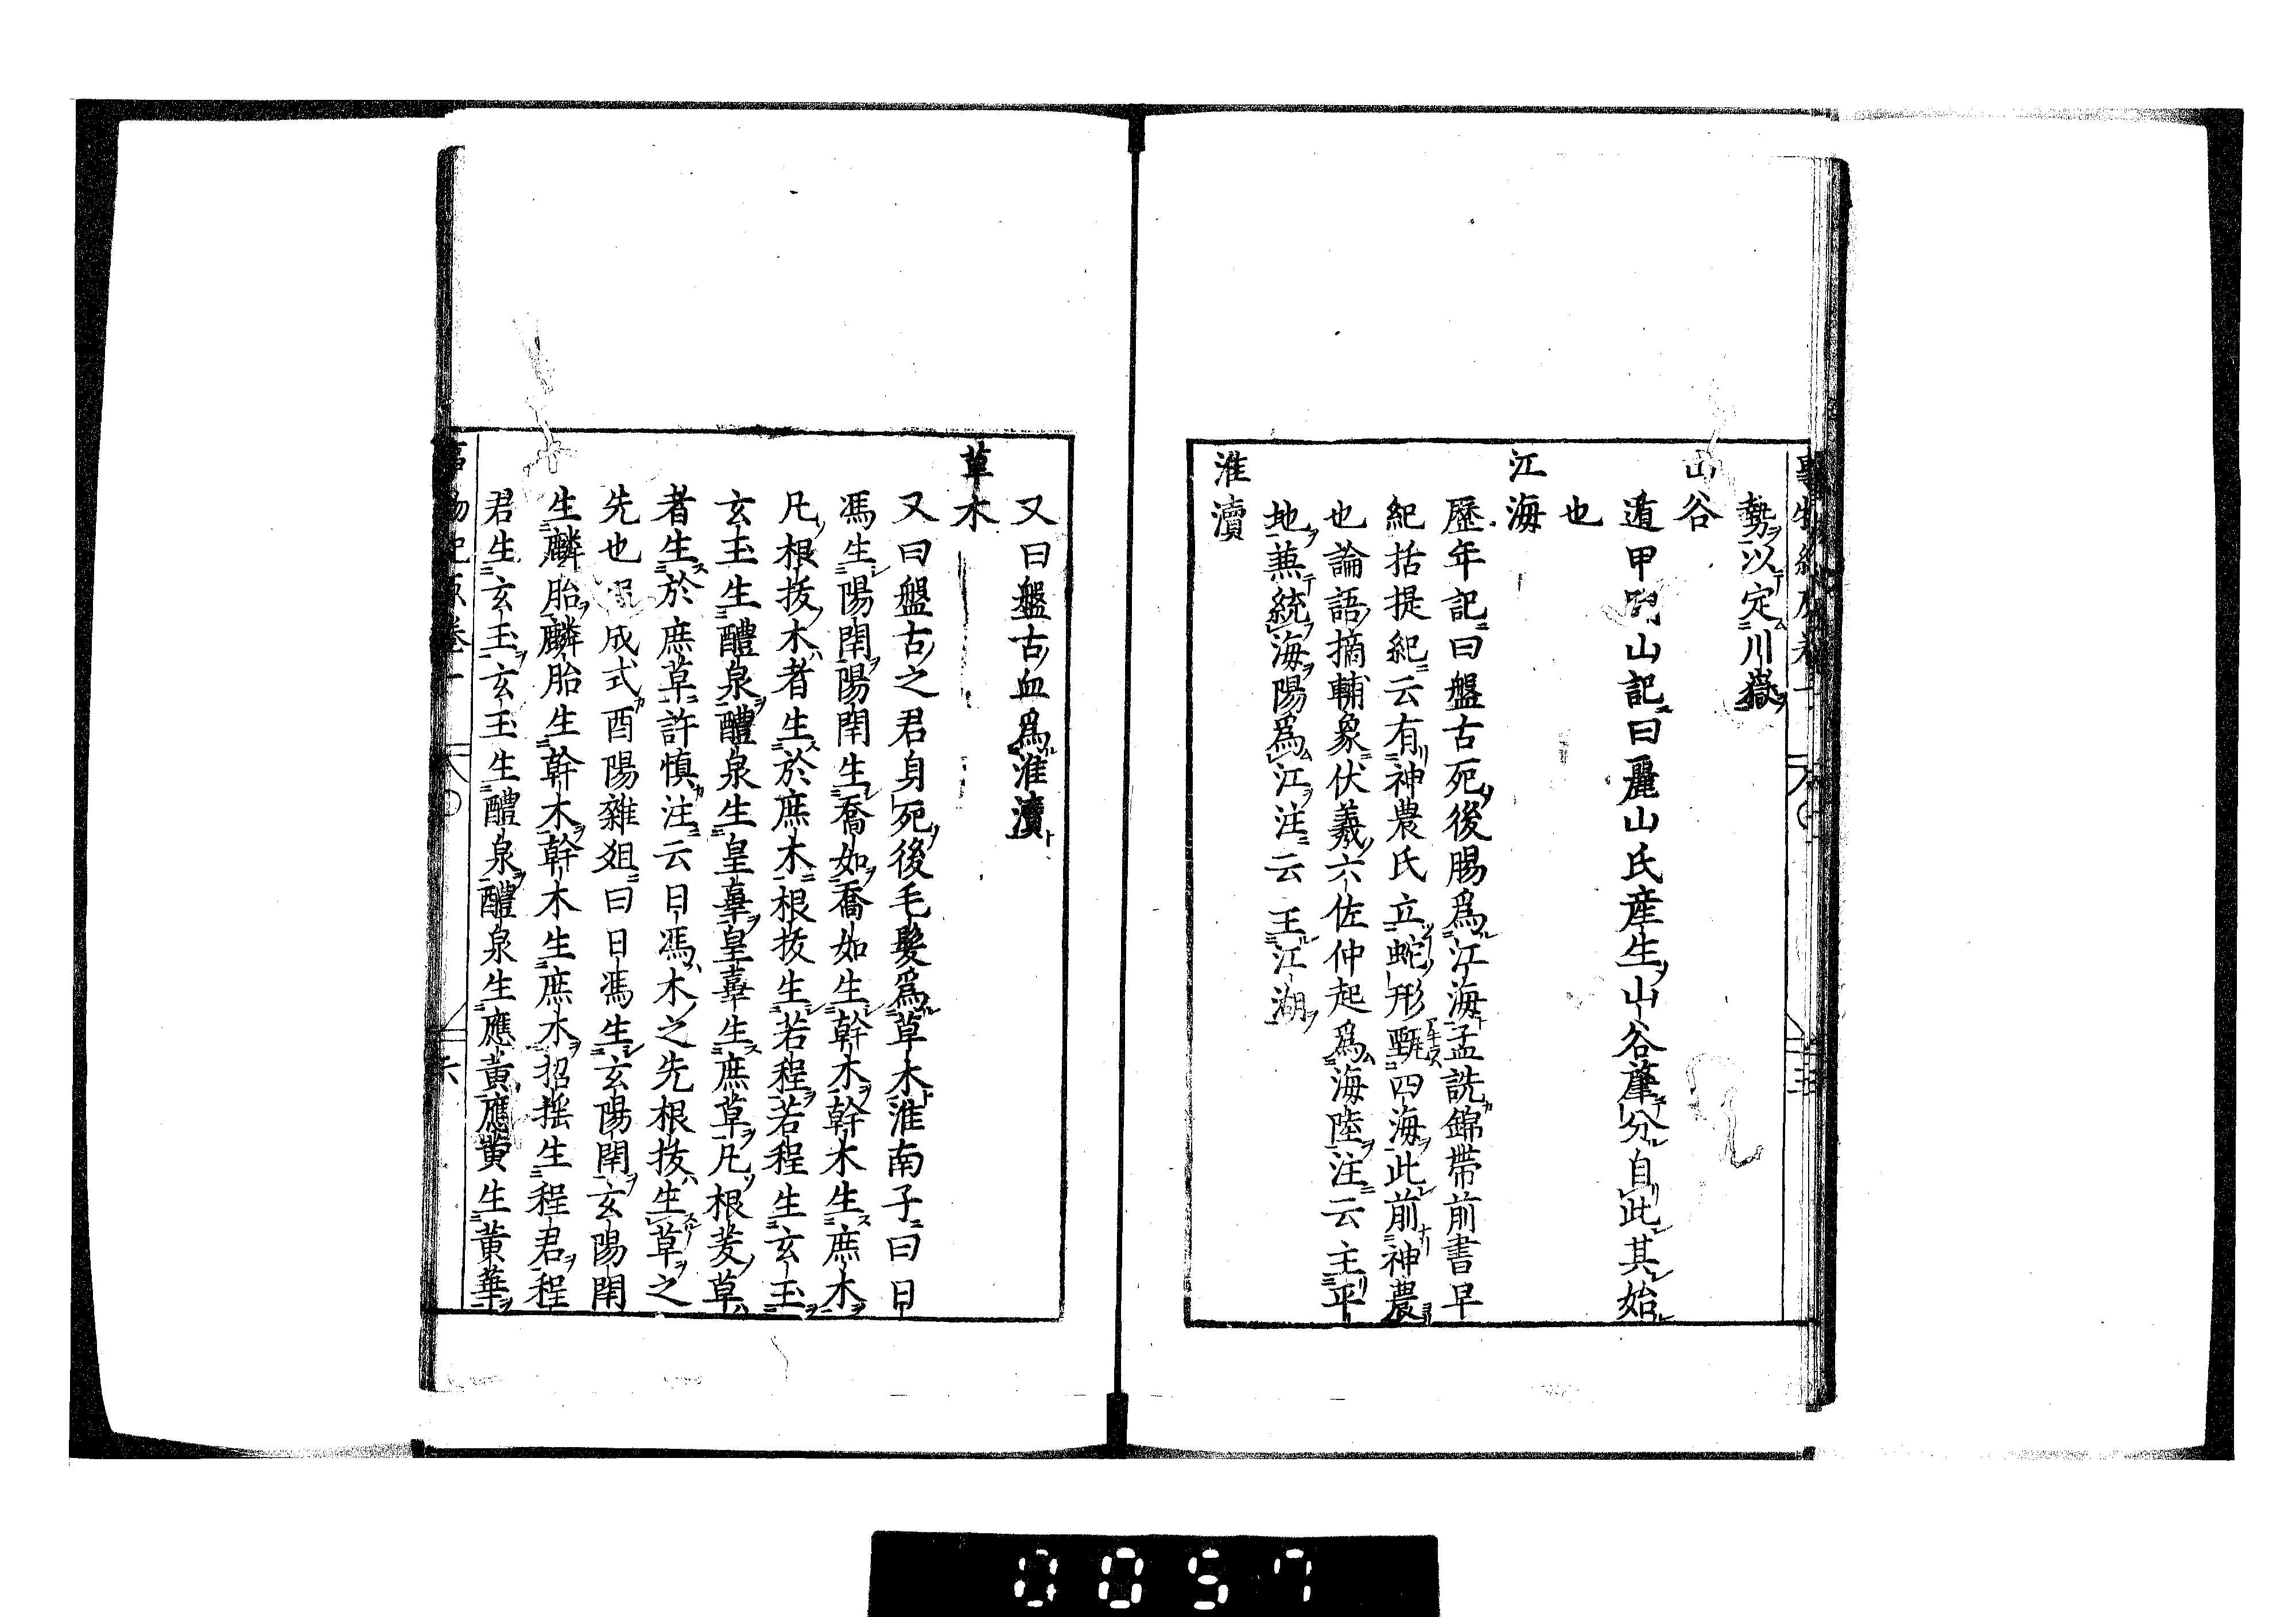 勢以定川嶽
山谷
遁甲開山記曰麗山氏産生山谷肇分自此其始
也
江海
歷年記曰盤古死後腸爲江海孟詵錦帶前書早
紀括提紀云有神農氏立蛇形甄四海此前神農
也論語摘輔象伏羲六佐仲起爲海陸注云主平
地兼統海陽爲江注云王江湖
淮瀆
又曰盤古血爲淮瀆
草木
又曰盤古之君身死後毛髮爲草木淮南子曰日
馮生陽閏陽閏生喬如喬如生幹木幹木生庶木
凡根拔木者生於庶木根拔生若程若程生玄玉
玄玉生醴泉醴泉生皇辜皇辜生庶草凡根茇草
者生於庶草許慎注云日馮木之先根拔生草之
先也 成式酉陽雜俎曰日馮生玄陽閏玄陽閏
生麟胎麟胎生幹木幹木生庶木招搖生程君程
君生玄玉玄玉生醴泉醴泉生應黃應黃生黃華
事物紀原卷一 六
0057